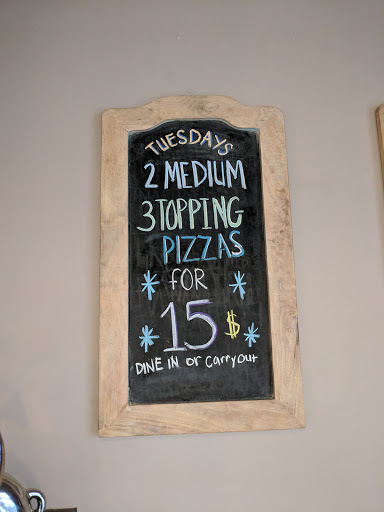 TUESDAYS
2 MEDIUM
3 TOPPING
PIZZAS
FOR
15 $
DINE IN or Carry out